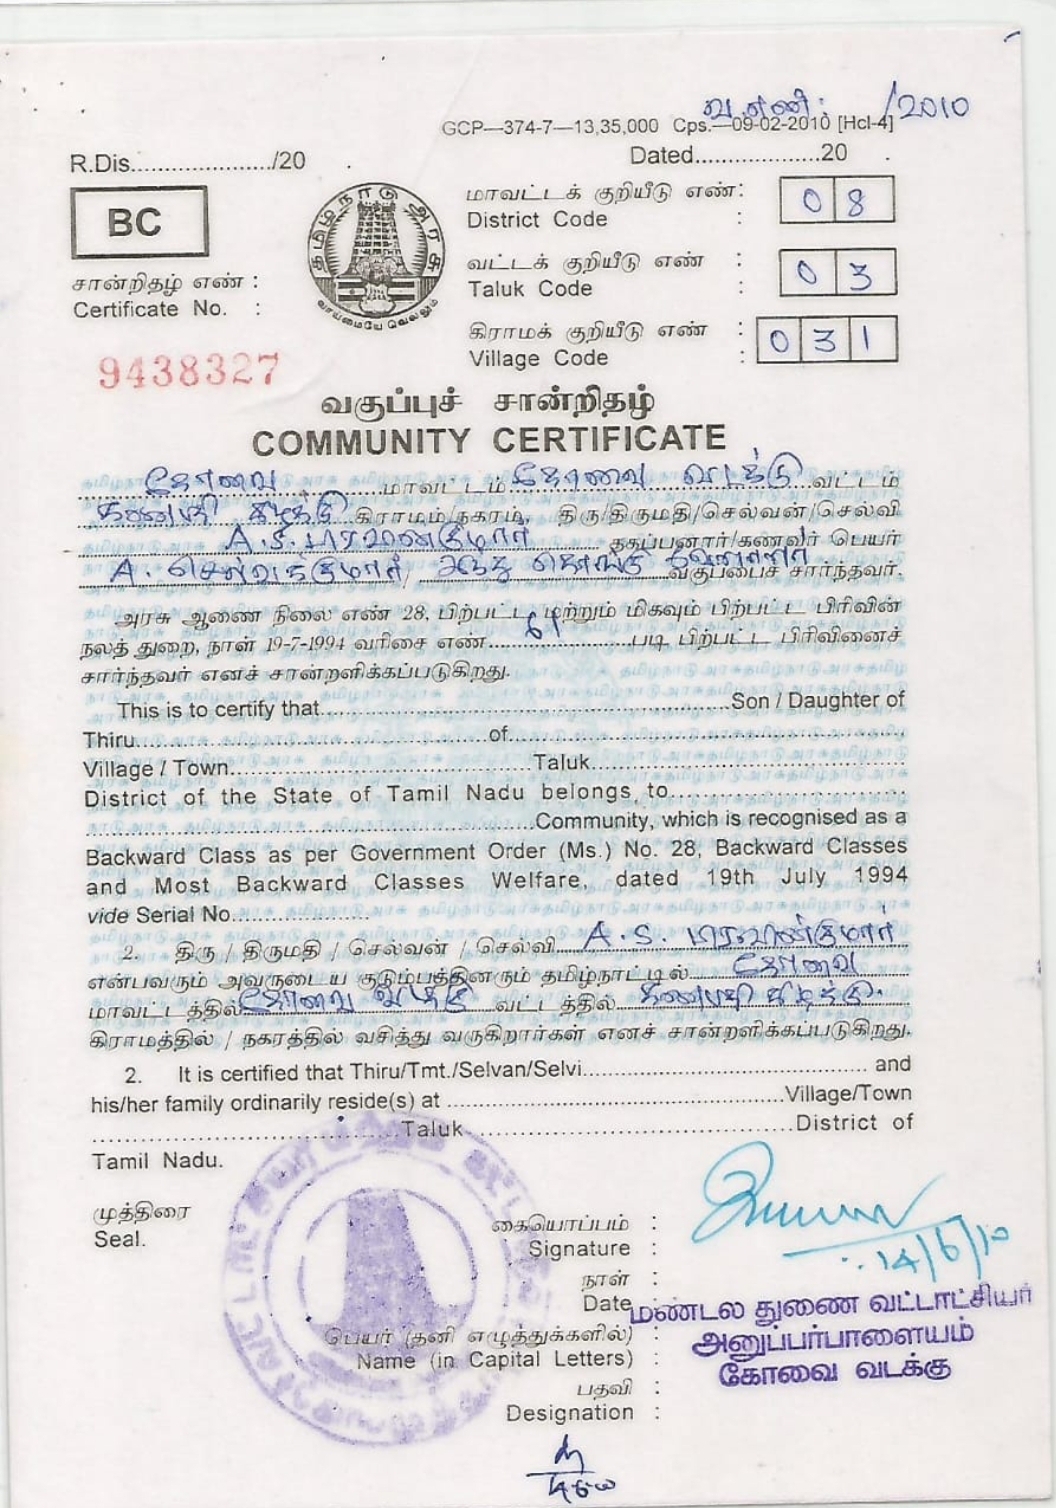 வ.எண்: /2010
GCP—374-7—13,35,000 Cps.—09-02-2010 [Hcl-4]
R.Dis...................../20 .
Dated...................20 .
BC
தமிழ்நாடு அரசு
வாய்மையே வெல்லும்
மாவட்டக் குறியீடு எண்:
District Code :
0 8
வட்டக் குறியீடு எண் :
Taluk Code :
0 3
கிராமக் குறியீடு எண் :
Village Code :
0 3 1
சான்றிதழ் எண் :
Certificate No. :
9438327
வகுப்புச் சான்றிதழ்
COMMUNITY CERTIFICATE
கோவை மாவட்டம் கோவை வடக்கு வட்டம்
கணபதி கிழக்கு கிராமம்/நகரம், திரு/திருமதி/செல்வன்/செல்வி
A.S. தகப்பனார்/கணவர் பெயர்
A. செல்வக்குமார், கொங்கு வகுப்பைச் சார்ந்தவர்.
அரசு ஆணை நிலை எண் 28, பிற்பட்ட மற்றும் மிகவும் பிற்பட்ட பிரிவின்
நலத் துறை, நாள் 19-7-1994 வரிசை எண்......61......படி பிற்பட்ட பிரிவினைச்
சார்ந்தவர் எனச் சான்றளிக்கப்படுகிறது.
This is to certify that..................................................Son / Daughter of
Thiru..................................................of..................................................
Village / Town..................................................Taluk........................................
District of the State of Tamil Nadu belongs to..............................
..................................................Community, which is recognised as a
Backward Class as per Government Order (Ms.) No. 28, Backward Classes
and Most Backward Classes Welfare, dated 19th July 1994
vide Serial No....................
2. திரு / திருமதி / செல்வன் / செல்வி A.S.
என்பவரும் அவருடைய குடும்பத்தினரும் தமிழ்நாட்டில் கோவை
மாவட்டத்தில் கோவை வடக்கு வட்டத்தில் கணபதி கிழக்கு.
கிராமத்தில் / நகரத்தில் வசித்து வருகிறார்கள் எனச் சான்றளிக்கப்படுகிறது.
2. It is certified that Thiru/Tmt./Selvan/Selvi........................................ and
his/her family ordinarily reside(s) at ..................................................Village/Town
........................................Taluk..................................................District of
Tamil Nadu.
முத்திரை
Seal.
கையொப்பம் :
Signature :
14/6/10
நாள் :
Date
மண்டல துணை வட்டாட்சியர்
அனுப்பர்பாளையம்
கோவை வடக்கு
பெயர் (தனி எழுத்துக்களில்) :
Name (in Capital Letters) :
பதவி :
Designation :